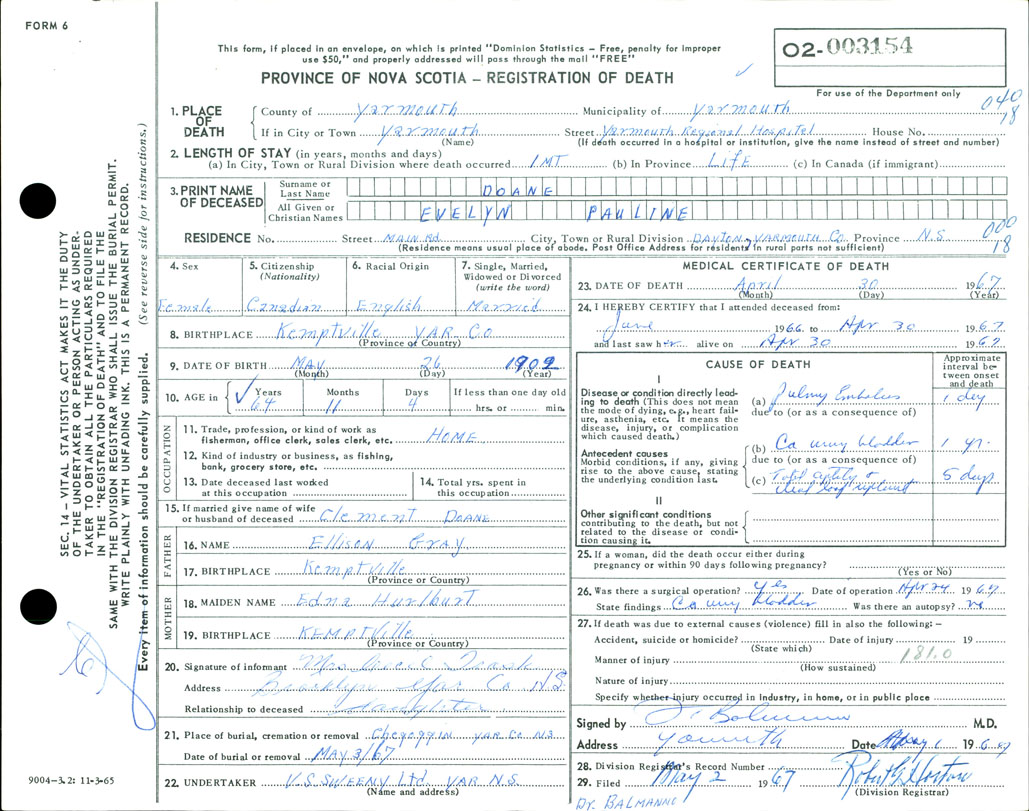 FORM 6
This form, if placed in an envelope, on which is printed "Dominion Statistics – Free, penalty for improper
use $50," and properly addressed will pass through the mail "FREE"
O2-003154
PROVINCE OF NOVA SCOTIA – REGISTRATION OF DEATH
For use of the Department only
040
18
1. PLACE OF DEATH
County of Yarmouth Municipality of Yarmouth
If in City or Town Yarmouth Street Yarmouth Regional Hospital House No.
(Name) (If death occurred in a hospital or institution, give the name instead of street and number)
2. LENGTH OF STAY (in years, months and days)
(a) In City, Town or Rural Division where death occurred 1 MT (b) In Province LIFE (c) In Canada (if immigrant)
3. PRINT NAME OF DECEASED
Surname or Last Name DOANE
All Given or Christian Names EVELYN PAULINE
RESIDENCE No. Street MAIN Rd. City, Town or Rural Division DAYTON, YARMOUTH Co. Province N.S.
(Residence means usual place of abode. Post Office Address for residents in rural parts not sufficient)
000
18
4. Sex Female
5. Citizenship (Nationality) Canadian
6. Racial Origin English
7. Single, Married, Widowed or Divorced (write the word) Married
8. BIRTHPLACE Kemptville YAR. Co
(Province or Country)
9. DATE OF BIRTH MAY 26 1902
(Month) (Day) (Year)
10. AGE in Years Months Days If less than one day old
64 11 4 hrs. or min.
OCCUPATION
11. Trade, profession, or kind of work as fisherman, office clerk, sales clerk, etc. HOME
12. Kind of industry or business, as fishing, bank, grocery store, etc.
13. Date deceased last worked at this occupation
14. Total yrs. spent in this occupation
15. If married give name of wife or husband of deceased Clement DOANE
FATHER
16. NAME Ellison Gray
17. BIRTHPLACE Kemptville
(Province or Country)
MOTHER
18. MAIDEN NAME Edna Hurlburt
19. BIRTHPLACE KEMPTVille
(Province or Country)
20. Signature of informant Mrs
Address Brooklyn Yar Co N/S
Relationship to deceased daughter
21. Place of burial, cremation or removal Chegoggin YAR. Co N.S
Date of burial or removal MAY 3/67
22. UNDERTAKER V.S. SWEENY Ltd. YAR. N.S.
(Name and address)
MEDICAL CERTIFICATE OF DEATH
23. DATE OF DEATH April 30 1967
(Month) (Day) (Year)
24. I HEREBY CERTIFY that I attended deceased from:
June 1966 to Apr 30 1967
and last saw her alive on Apr 30 1967
CAUSE OF DEATH
Approximate interval between onset and death
I
Disease or condition directly leading to death (This does not mean the mode of dying, e.g., heart failure, asthenia, etc. It means the disease, injury, or complication which caused death.)
(a) Pulmy Embolus 1 day
due to (or as a consequence of)
Antecedent causes
Morbid conditions, if any, giving rise to the above cause, stating the underlying condition last.
(b) Ca ury bladder 1 yr.
due to (or as a consequence of)
(c) Total cystecty + ileal loop 5 days
II
Other significant conditions
contributing to the death, but not related to the disease or condition causing it.
25. If a woman, did the death occur either during pregnancy or within 90 days following pregnancy?
(Yes or No)
26. Was there a surgical operation? Yes Date of operation Apr 24 1967
State findings Ca ury bladder Was there an autopsy? no
27. If death was due to external causes (violence) fill in also the following: –
Accident, suicide or homicide? Date of injury 19
(State which)
181.0
Manner of injury
(How sustained)
Nature of injury
Specify whether injury occurred in industry, in home, or in public place
Signed by Balmanno M.D.
Address Yarmouth Date May 1 1967
28. Division Registrar's Record Number
29. Filed May 2 1967
(Division Registrar)
Dr. BALMANNO
SEC. 14 – VITAL STATISTICS ACT MAKES IT THE DUTY
OF THE UNDERTAKER OR PERSON ACTING AS UNDER-
TAKER TO OBTAIN ALL THE PARTICULARS REQUIRED
IN THE "REGISTRATION OF DEATH" AND TO FILE THE
SAME WITH THE DIVISION REGISTRAR WHO SHALL ISSUE THE BURIAL PERMIT.
WRITE PLAINLY WITH UNFADING INK. THIS IS A PERMANENT RECORD.
Every item of information should be carefully supplied. (See reverse side for instructions.)
9004–3.2: 11-3-65